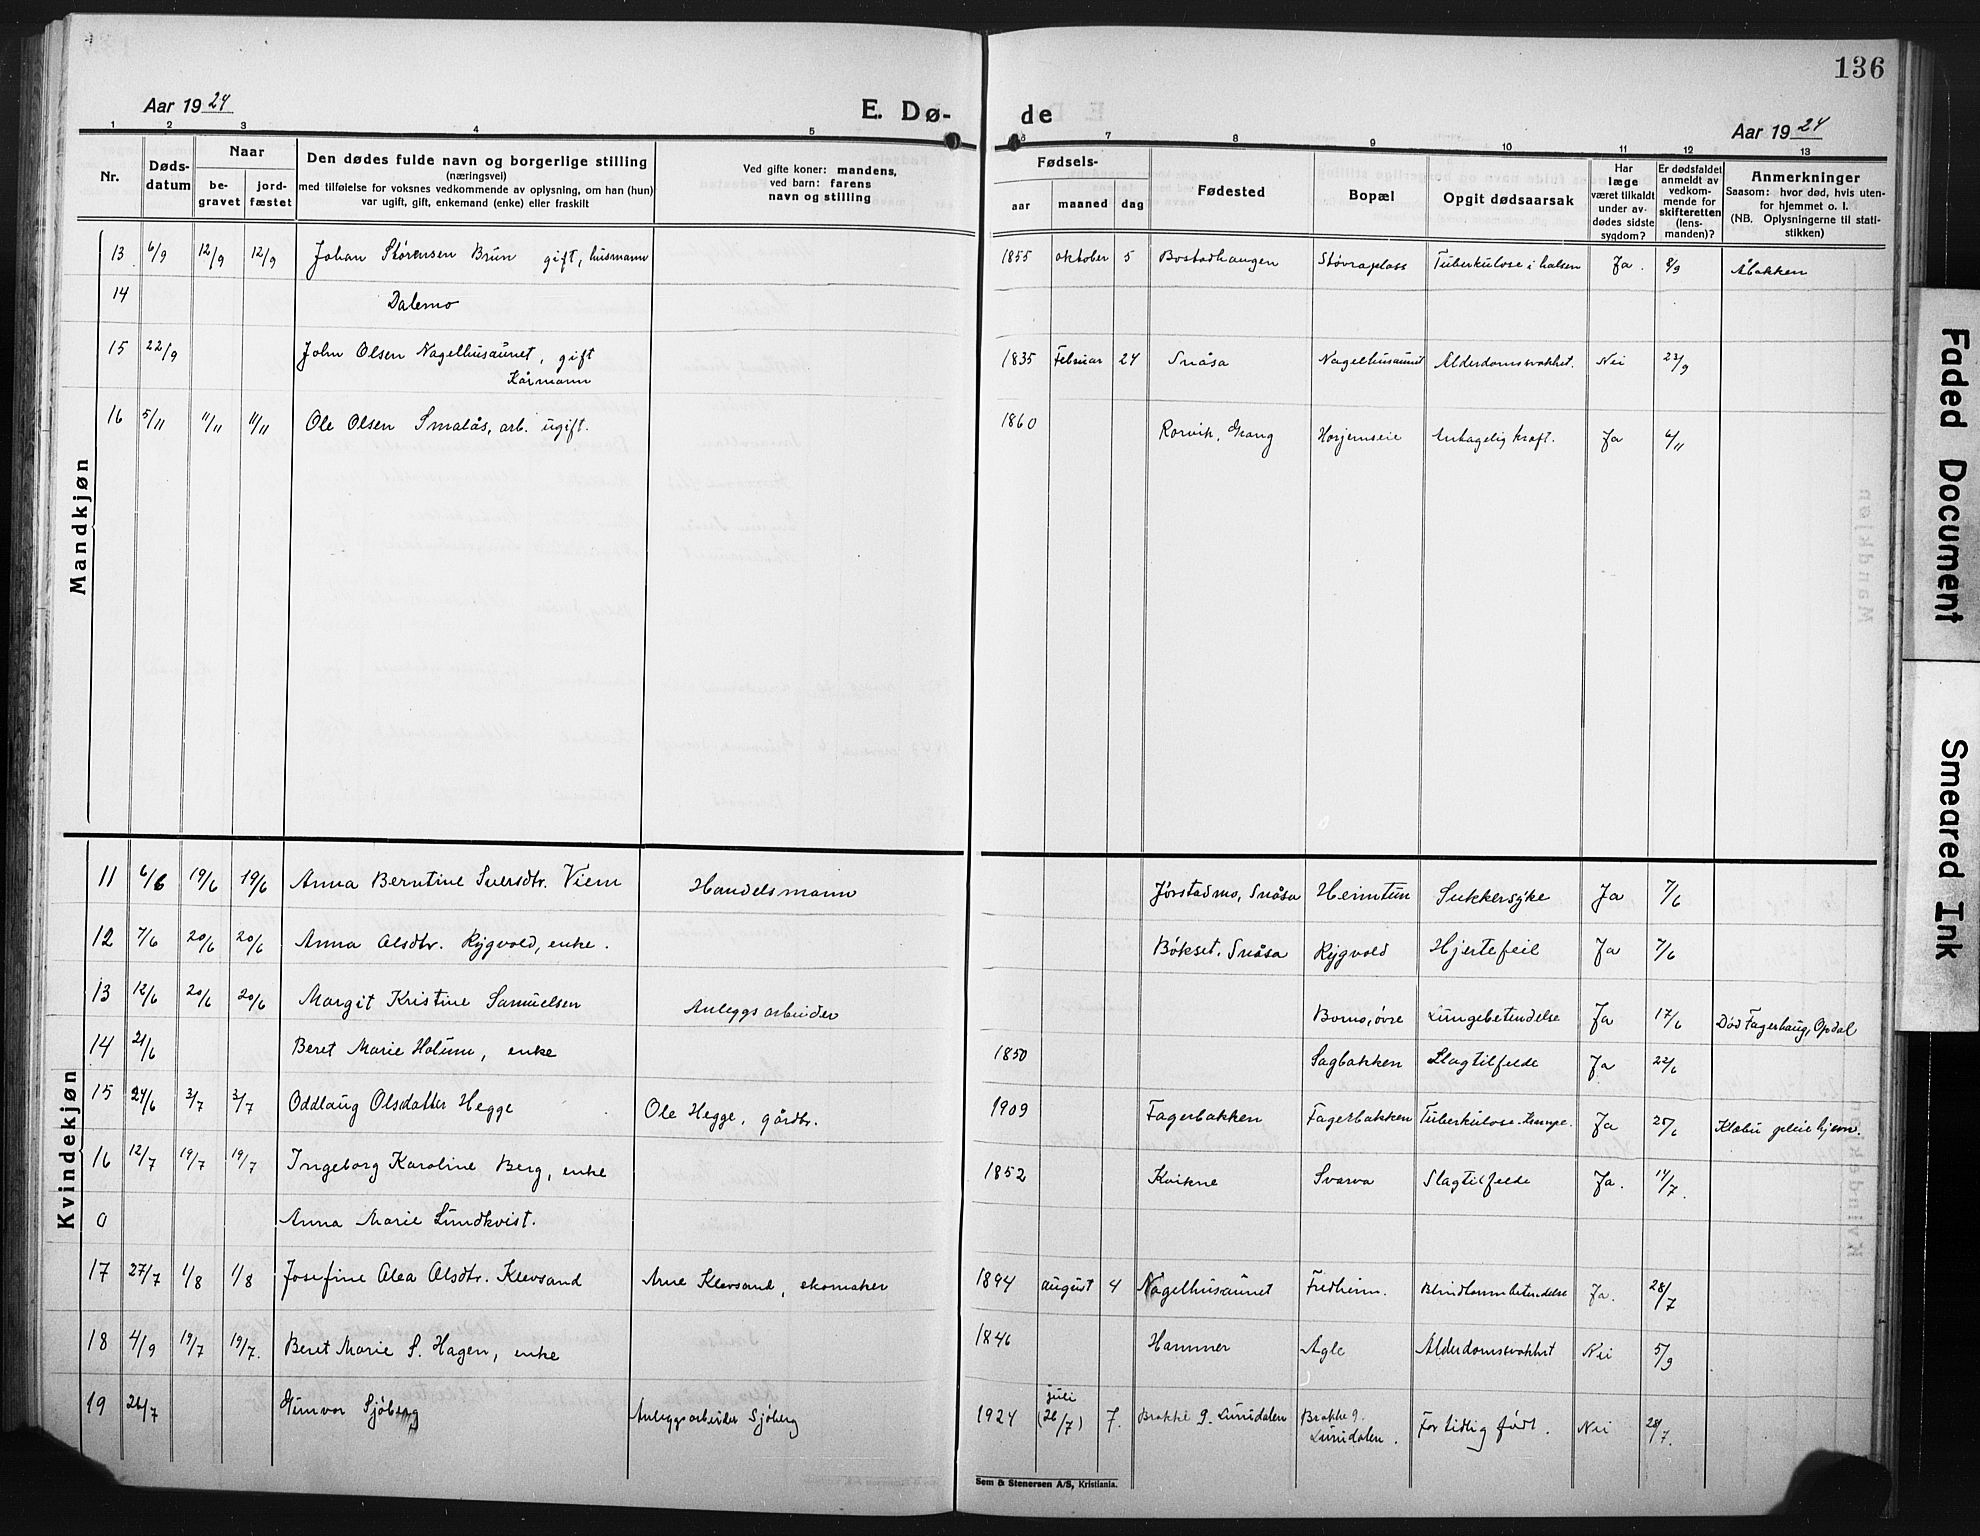 136
Aar 1924
E. Dø-
de
Aar 1924
1 2 3 4 5 6 7 8 9 10 11 12 13
Nr.
Døds-
datum
Naar
be-
gravet
jord-
fæstet
Den dødes fulde navn og borgerlige stilling
(næringsvei)
med tilføielse for voksnes vedkommende av oplysning, om han (hun)
var ugift, gift, enkemand (enke) eller fraskilt
Ved gifte koner: mandens,
ved barn: farens
navn og stilling
Fødsels-
aar maaned dag
Fødested
Bopæl
Opgit dødsaarsak
Har
læge
været tilkaldt
under av-
dødes sidste
sygdom?
Er dødsfaldet
anmeldt av
vedkom-
mende for
skifteretten
(lens-
manden)?
Anmerkninger
Saasom: hvor død, hvis uten-
for hjemmet o. l.
(NB. Oplysningerne til stati-
stikken)
Mandkjøn
13 6/9 12/9 12/9 Johan Sørensen Brun gift, husmann 1855 oktober 5 Bostadhaugen Støvraplass Tuberkulose i halsen Ja. 8/9 Åbakken
14 Dalemo
15 22/9 John Olsen Nagelhusaunet, gift 1835 Februar 24 Snåsa Nagelhusaunet Alderdomssvakhet. Nei 23/9
Kårmann
16 5/11 11/11 11/11 Ole Olsen Smalås, arb. ugift. 1860 Rorvik, Grong Horjemseie Antagelig kræft. Ja 6/11
Kvindekjøn
11 6/6 19/6 19/6 Anna Berntine Siversdtr. Viem Handelsmann Jørstadmo, Snåsa Heimtun Sukkersyke Ja 7/6
12 7/6 20/6 20/6 Anna Olsdtr. Rygvold, enke. Bøkset, Snåsa Rygvold Hjertefeil Ja 7/6
13 12/6 20/6 20/6 Margit Kristine Samuelsen Anleggsarbeider Bomo, øvre Lungebetendelse Ja 17/6 Død Fagerhaug, Opdal
14 21/6 Beret Marie Holum, enke 1850 Sagbakken Slagtilfelde Ja 22/6
15 24/6 3/7 3/7 Oddlaug Olsdatter Hegge Ole Hegge, gårdbr. 1909 Fagerbakken Fagerbakken Tuberkulose Ja 25/6 Klæbu pleiehjem.
16 12/7 19/7 19/7 Ingeborg Karoline Berg, enke 1852 Kvikne Svarva Slagtilfelde Ja. 14/7.
0 Anna Marie Lundkvist.
17 27/7 1/8 1/8 Josefine Alea Olsdtr. Klevsand Arne Klevsand, skomaker 1894 august 4 Nagelhusaunet Fredheim. Blindtarmbetendelse Ja. 28/7
18 4/9 19/7 19/7. Beret Marie S. Hagen, enke 1846 Hammer Agle Alderdomssvakhet Nei 5/9
19 26/7 Gunvor Sjøberg Anleggsarbeider Sjøberg 1924 juli (26/7) 7. Brakke 9. Lurudalen Brakke 9. Lurudalen. For tidlig født. Nei 28/7.
Sem & Stenersen A/S, Kristiania.
Faded Document
Smeared Ink